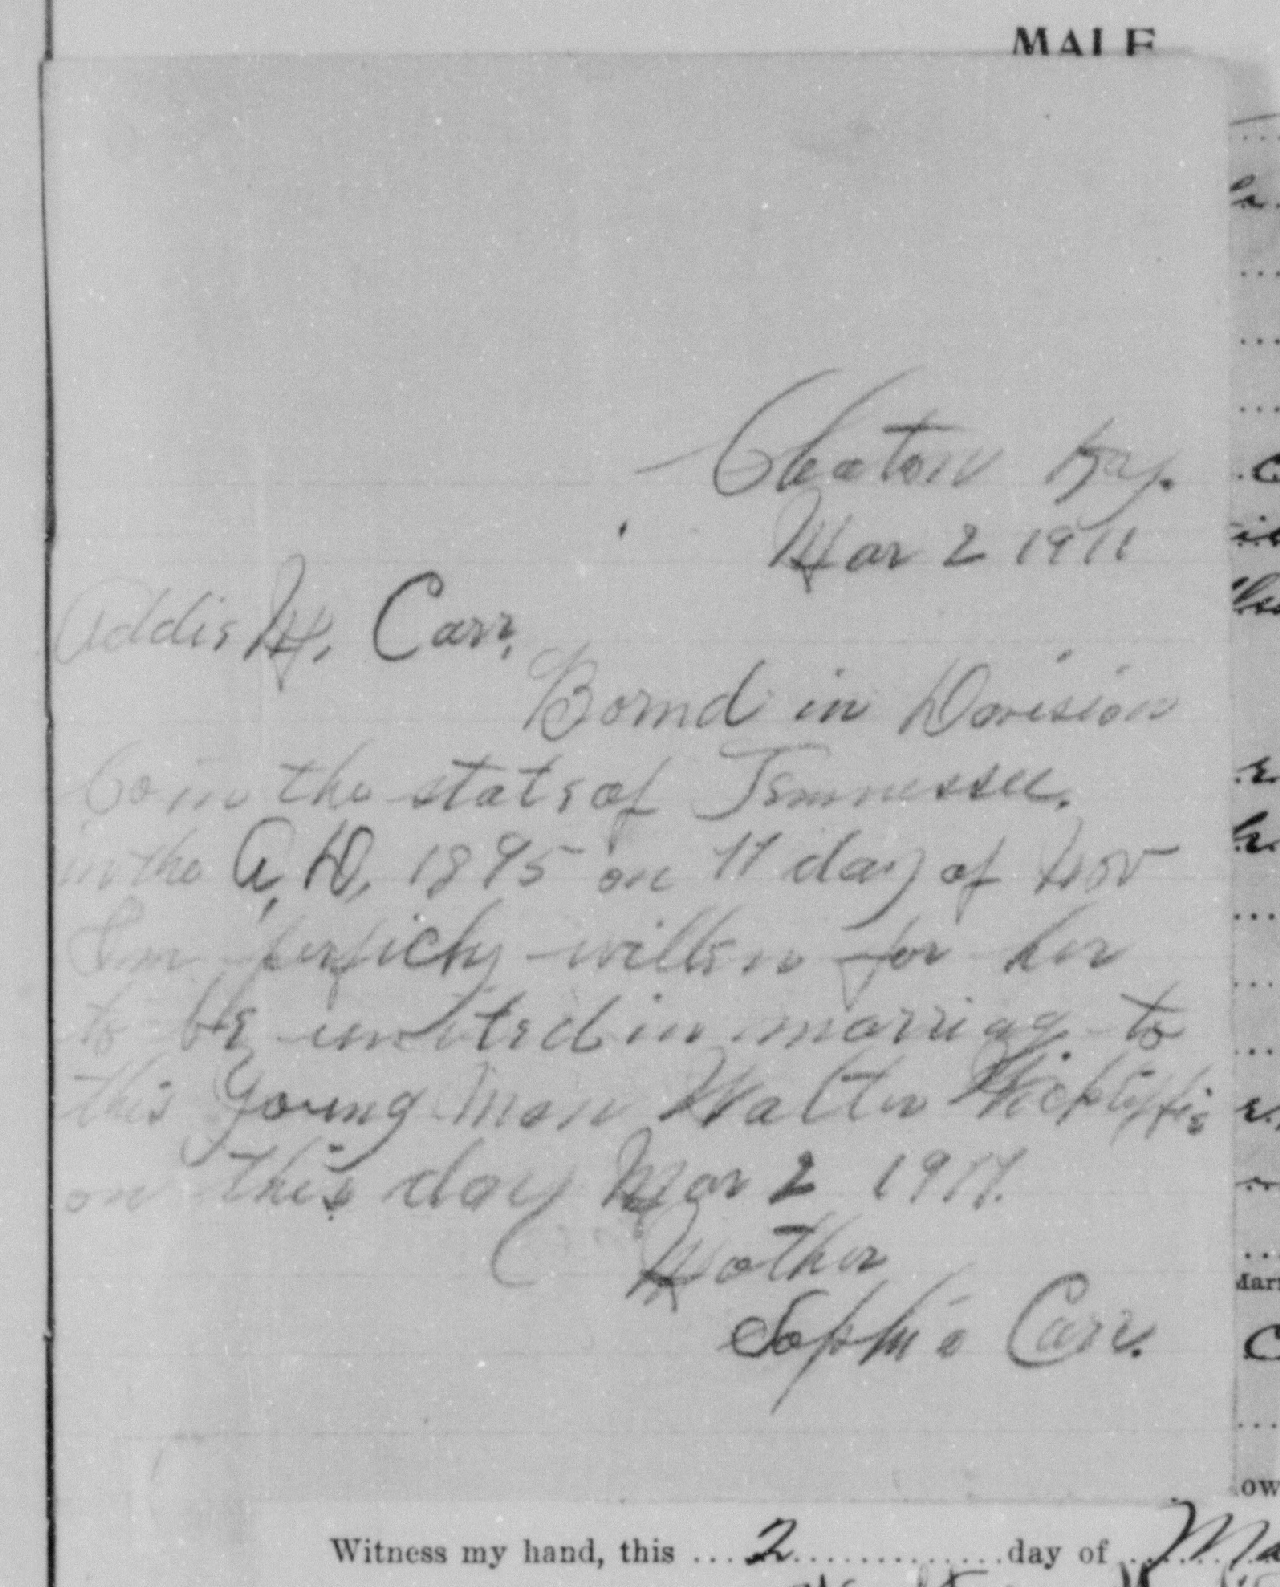 MALE
Cleaton Ky.
Mar 2 1911
Addie M. Carr.
Bornd in Davision
Co in the state of Tennessee.
in the A.D. 1895 on 11 day of Nov
I'm perfictly willen for her
to be united in marriag to
this young man Walter Wickliffe
on this day Mar 2 1911.
Mother
Sophia Carr.
Witness my hand, this 2 day of